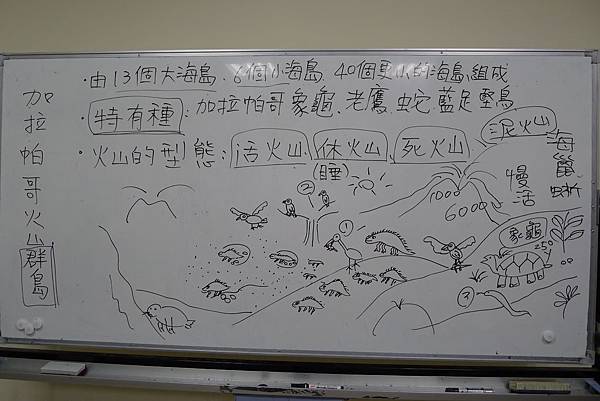 加拉帕哥火山群島
·由13個大海島、6個小海島、40個更小的海島組成
·特有種:加拉帕哥象龜、老鷹 蛇 藍足堅鳥
·火山的型態:活火山 休火山 死火山 泥火山
(睡)
海鬣蜥
慢活
1000
6000
象龜
250
①
②
③